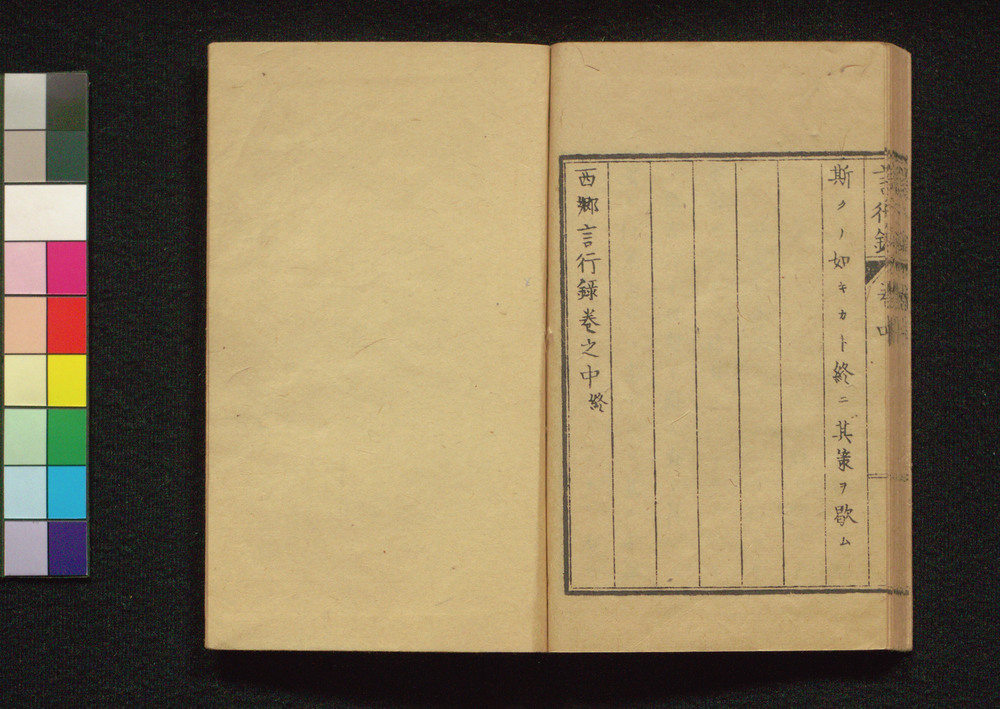 言行録 卷中
斯クノ如キカト終ニ其策ヲ歇ム
西郷言行録卷之中終